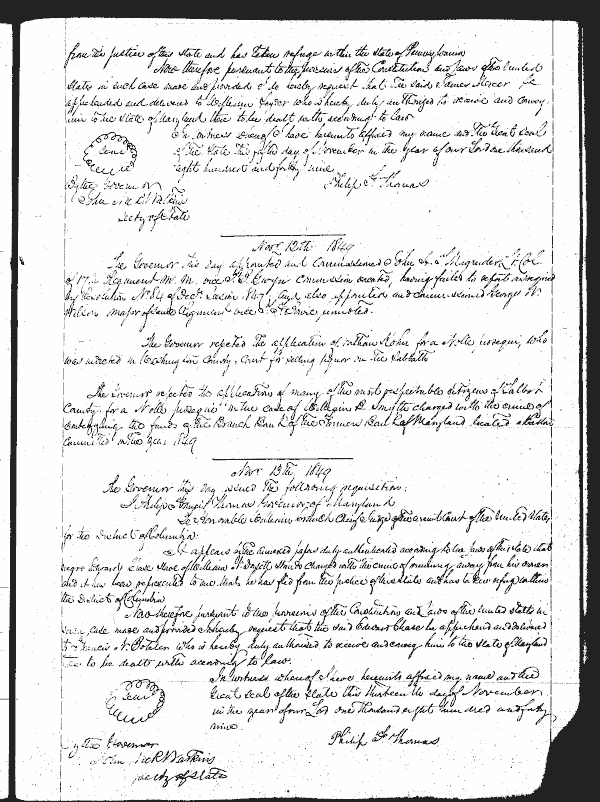 from the justice of this state and has taken refuge within the state of Pennsylvania
Now therefore pursuant to the provisions of the Constitution and laws of the United
States in such case made and provided I do hereby request that the said James Mercer be
apprehended and delivered to William Taylor who is hereby duly authorized to receive and convey
him to the State of Maryland there to be dealt with according to law
In witness whereof I have hereunto affixed my name and the Great Seal
Seal
of the State this day of November in the year of our Lord one thousand
eight hundred and forty nine
By the Governor
Philip F Thomas
John N Watkins
Secty of State
Novr 12th 1849
The Governor this day appointed and commissioned John Magruder Lt Col
of 17th Regiment Md. M. vice Gwyn commission vacated, having failed to report
by Resolution No 84 of Decr session 1847. And also appointed and commissioned George W.
Wilson Major of said Regiment vice promoted.
The Governor rejected the application of Nathan for a Nolle prosequi, who
was indicted in Washington County Court for selling liquor on the Sabbath
The Governor rejected the application of many of the most respectable citizens of Talbot
County for a Nolle prosequi in the case of William Smyth charged with the crime of
embezzling the funds of the Branch Bank of the Farmers Bank of Maryland located at Easton
committed in the year 1849
Novr 13th 1849
The Governor this day issued the following requisition:
I Philip Francis Thomas Governor of Maryland
To Honorable Chief Judge of the Circuit Court of the United States
for the District of Columbia:
It appears by the annexed papers duly authenticated according to the laws of this state that
negro Edward Chase slave of William stands charged with the crime of running away from his owner
and it has been represented to me that he has fled from the justice of this state and has taken refuge within
the District of Columbia
Now therefore pursuant to the provisions of the Constitution and laws of the United States in
such case made and provided I hereby request that the said Edward Chase be apprehended and delivered
to Francis N. who is hereby duly authorized to receive and convey him to the state of Maryland
there to be dealt with according to law.
In witness whereof I have hereunto affixed my name and the
Seal
Great seal of the State this thirteenth day of November
in the year of our Lord one thousand eight hundred and forty
nine.
By the Governor
Philip F Thomas
John N Watkins
Secty of State